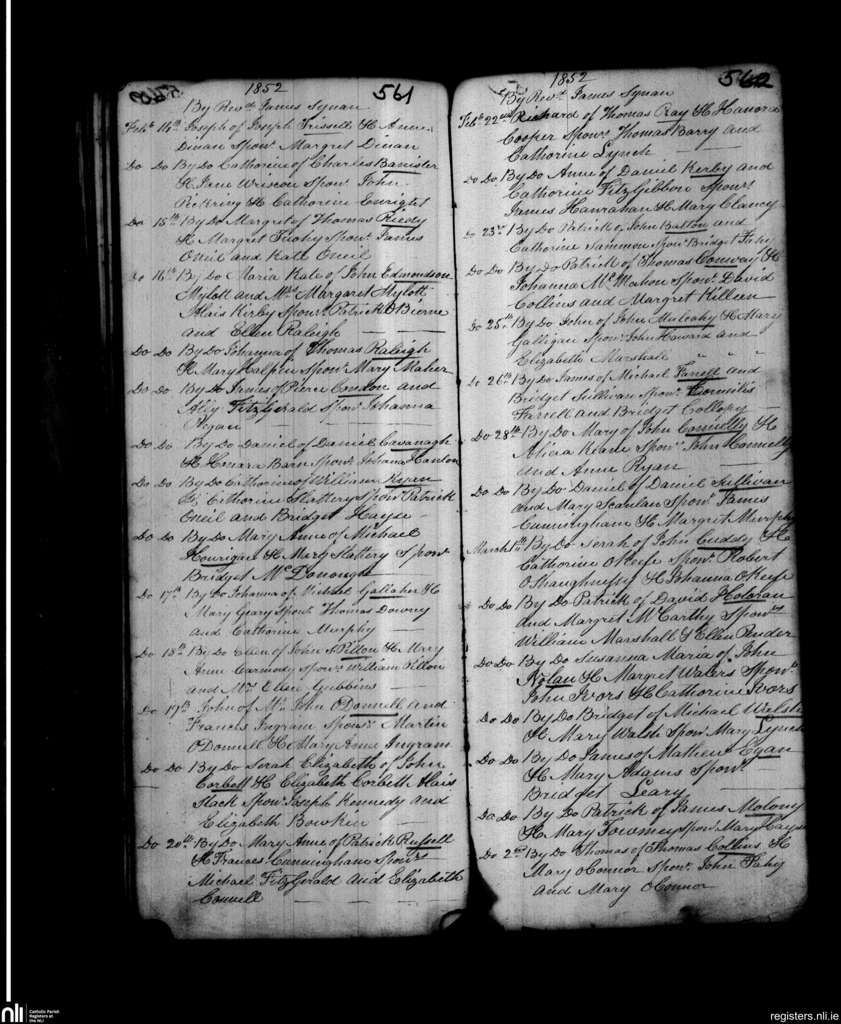 1852
561
By Revd. James Synan
Feby 14th Joseph of Joseph Frissell & Anne
Dinan Sponr. Margret Dinan
Do Do By Do Catherine of Charles Banister
& Jane Wriscon Sponr. John
Pickring & Catherine Enright
Do 15th By Do Margret of Thomas Reedy
& Margret Tuohy Sponr. James
Oneil and Kate Oneil
Do 16th By Do Maria Kate of John Edmondson
Mylott and Mrs. Margaret Mylott
Alais Kirby Sponrs. Patrick O Bierne
and Ellen Raleigh
Do Do By Do Johanna of Thomas Raleigh
& Mary Halpin Sponr. Mary Maher
Do Do By Do James of Pierce Condon and
Aliy FitzGerald Sponr. Johanna
Regan
Do Do By Do Daniel of Daniel Cavanagh
& Honora Barn Sponr. Johana Hanlon
Do Do By Do Catherine of William Ryan
& Catherine Slattery Sponr. Patrick
Oneil and Bridget Hayse
Do Do By Do Mary Anne of Michael
Hourigan & Mary Slattery Sponr.
Bridget McDonough
Do 17th By Do Johanna of Michael Galiaher &
Mary Geary Sponr. Thomas Downy
and Catherine Murphy
Do 18th By Do Ellen of John Pillon & Mary
Anne Carmody Sponr. William Pillon
and Mrs. Ellen Gubbins
Do 19th John of Mr. John ODonnell and
Francis Ingram Sponsr. Martin
ODonnell & Mary Anne Ingram
Do Do By Do Serah Elizabeth of John
Corbett & Elizabeth Corbett Alais
Slack Sponr. Joseph Kennedy and
Elizabeth Bowken
Do 20th By Do Mary Anne of Patrick Russell
& Frances Cunningham Sponrs
Michael FitzGerald and Elizabeth
Connell
1852
562
By Revd. James Synan
Feby 22nd Richard of Thomas Ray & Hanora
Cooper Sponr. Thomas Barry and
Catherine Lynch
Do Do By Do Anne of Daniel Kerby and
Catherine FitzGibbon Sponr.
James Hanrahan & Mary Clancy
Do 23rd By Do Patrick of John Batton and
Catherine Sammon Sponr. Bridget Fahy
Do Do By Do Patrick of Thomas Conway &
Johanna McMahon Sponr. David
Collins and Margret Killeen
Do 25th By Do John of John Mulcahy & Mary
Galligan Sponr. John Howard and
Elizabeth Marshall " " "
Do 26th By Do James of Michael Farrell and
Bridget Sullivan Sponr. Cornilis
Farrell and Bridget Collopy
Do 28th By Do Mary of John Connolly &
Alicia Keane Sponr. John Connelly
and Anne Ryan
Do Do By Do Daniel of Daniel Sullivan
and Mary Scanlan Sponr. James
Cunningham & Margret Murphy
March 1st By Do Serah of John Cuddy &
Catherine OKeefe Sponr. Robert
OShaughnessy & Johanna OKeefe
Do Do By Do Patrick of David Holoran
and Margret McCarthy Sponrs
William Marshall & Ellen Ruder
Do Do By Do Susanna Maria of John
Nolan & Margret Waters Sponr.
John Ivors & Catherine Ivors
Do Do By Do Bridget of Michael Welsh
& Mary Walsh Sponr. Mary Lynch
Do Do By Do James of Mathew Egan
& Mary Adams Sponr.
Bridget Leary
Do Do By Do Patrick of James Molony
& Mary Twomey Sponr. Mary Hayse
Do 2nd By Do Thomas of Thomas Collins &
Mary OConnor Sponr. John Fahy
and Mary OConnor
nli
Catholic Parish
Registers at
the NLI
registers.nli.ie